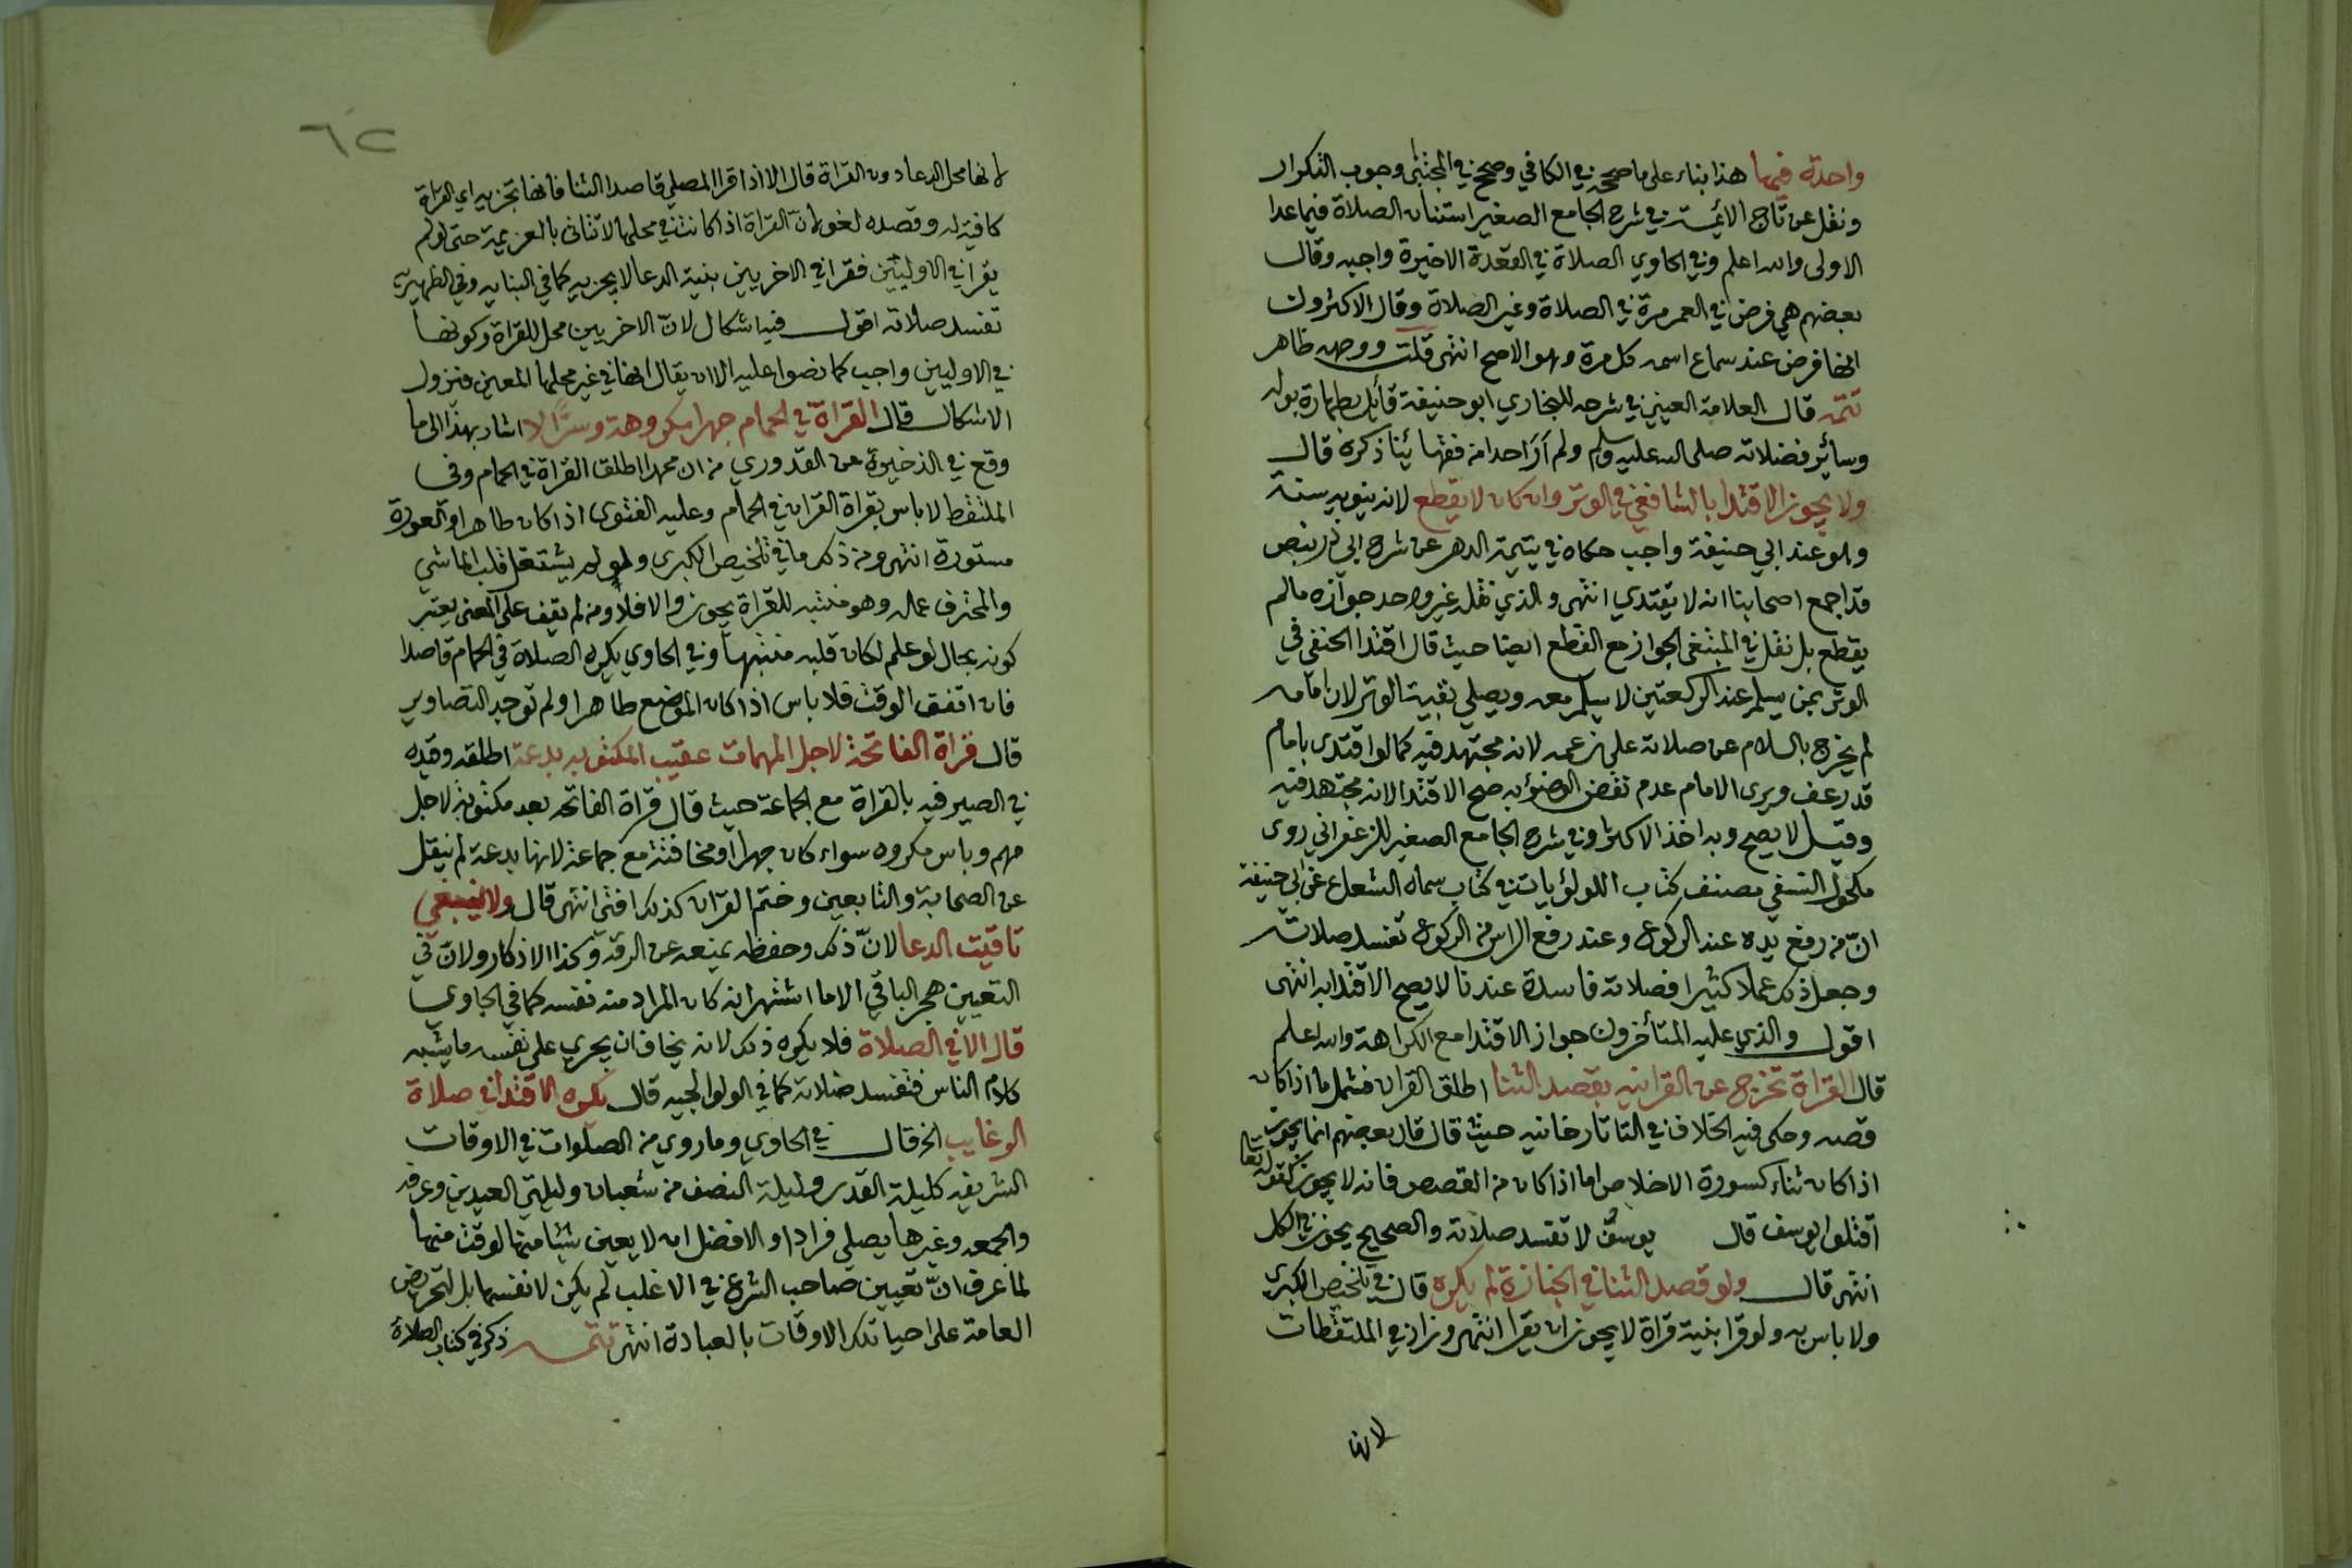 واحدة فيهما هذا بناء على ما صححه في الكافي وصحح في المجتبى وجوب التكرار
ونقل عن تاج الأئمة في شرح الجامع الصغير استنان الصلاة فيما عدا
الاولى والله اعلم وفي الحاوي الصلاة في القعدة الاخيرة واجبه وقال
بعضهم هي فرض في العمر مرة في الصلاة وغير الصلاة وقال الاكثرون
انها فرض عند سماع اسمه كل مرة وهو الاصح انتهى قلت ووجهه ظاهر
تتمه قال العلامة العيني في شرحه للبخاري ابو حنيفة قائل بطهارة بوله
وسائر فضلاته صلى الله عليه وسلم ولم أرَ احدا من فقهائنا ذكره قال
ولا يجوز الاقتدا بالشافعي في الوتر وان كان لا يقطع لانه ينويه سنة
وهو عند ابي حنيفة واجب حكاه في يتيمة الدهر عن شرح ابي ذر بنص
قد اجمع اصحابنا انه لا يقتدي انتهى والذي نقله غير واحد جوازه مالم
يقطع بل نقل في المبتغى الجواز مع القطع ايضا حيث قال اقتدا الحنفي في
الوتر بمن يسلم عند الركعتين لا يسلم معه ويصلي بقية الوتر لان امامه
لم يخرج بالسلام عن صلاته على زعمه لانه مجتهد فيه كما لو اقتدى بامام
قد رعف ويرى الامام عدم نقض الوضوء به صح الاقتدا لانه مجتهد فيه
وقيل لا يصح وبه اخذ الاكثر وفي شرح الجامع الصغير للزعفراني روى
مكحول النسفي مصنف كتاب اللولؤيات في كتاب سماه الشعاع عن ابي حنيفة
انّ من رفع يده عند الركوع وعند رفع الراس من الركوع تفسد صلاته
وجعل ذلك عملا كثيرا فصلاته فاسدة عندنا لا يصح الاقتدا به انتهى
اقول والذي عليه المتأخرون جواز الاقتدا مع الكراهة والله اعلم
قال القراة تخرج عن القرانيه بقصد الثنا اطلق القران فشمل ما اذا كان
قصه وحكى فيه الخلاف في التاتارخانيه حيث قال قال بعضهم انما يجوز
اذا كان ثناء كسورة الاخلاص اما اذا كان من القصص فانه لا يجوز كقوله تعا
اقتلوا يوسف قال يوسف لا تفسد صلاته والصحيح يجوز في الكل
انتهى قال ولو قصد الثنا في الجنازة لم يكره قال في تلخيص الكبرى
ولا باس به ولو قرا بنية قراة لا يجوز ان يقرا انتهى وزاد في الملتقطات
لانها
٦٢
لانها محل الدعا دون القراة قال الا اذا قرا المصلي قاصدا الثنا فانها تجزيه اي القراة
كافية له وقصده لغو لانّ القراة اذا كانت في محلها لا تنافى بالعزيمة حتى لو لم
يقرا في الاوليين فقرا في الاخريين بنية الدعا لا يجزيه كما في البنايه وفي الظهيريه
تفسد صلاته اقول فيه اشكال لانّ الاخريين محل للقراة وكونها
في الاوليين واجب كما نصوا عليه الا ان يقال انها في غير محلها المعين فيزول
الاشكال قال القراة في الحمام جهرا مكروهة وسرًّا لا اشار بهذا الى ما
وقع في الذخيرة عن القدوري من ان محمدا اطلق القراة في الحمام وفى
الملتقط لا باس بقراة القران في الحمام وعليه الفتوى اذا كان طاهرا والعورة
مستورة انتهى ومن ذلك ما في تلخيص الكبرى ولو لم يشتغل قلب الماشي
والمحترف عمله وهو منتبه للقراة يجوز والا فلا ومن لم يقف على المعنى يعتبر
كونه بحال لو علم لكان قلبه منتبها وفي الحاوي يكره الصلاة في الحمام قاصدا
فان اتفق الوقت فلا باس اذا كان الموضع طاهرا ولم توجد التصاوير
قال قراة الفاتحة لاجل المهمات عقيب المكتوبه بدعة اطلقه وقيده
في الصيرفيه بالقراة مع الجماعة حيث قال قراة الفاتحه بعد مكتوبة لاجل
مهم وباس مكروه سواء كان جهرا او مخافتة مع جماعة لانها بدعة لم ينقل
عن الصحابة والتابعين وختم القران كذلك افتي انتهى قال ولا ينبغي
تاقيت الدعا لانّ ذلك وحفظه يمنعه عن الرقة وكذا الاذكار ولانّ في
التعيين هجر الباقي الا ما اشتهر انه كان المراد منه نفسه كما في الحاوي
قال الا في الصلاة فلا يكره ذلك لانه يخاف ان يجري على نفسه ما يشبه
كلام الناس فتفسد صلاته كما في الولوالجيه قال يكره الاقتدا في صلاة
الرغايب الخ قال في الحاوي وما روي من الصلوات في الاوقات
الشريفه كليلة القدر وليلة النصف من شعبان وليلتي العيدين وعرفه
والجمعه وغيرها يصلي فرادا والافضل ان لا يعين شيا منها لوقت منها
لما عرف انّ تعيين صاحب الشرع في الاغلب لم يكن لانفسها بل لتحريض
العامة على احيا تلك الاوقات بالعبادة انتهى تتمه ذكر في كتاب الصلاة